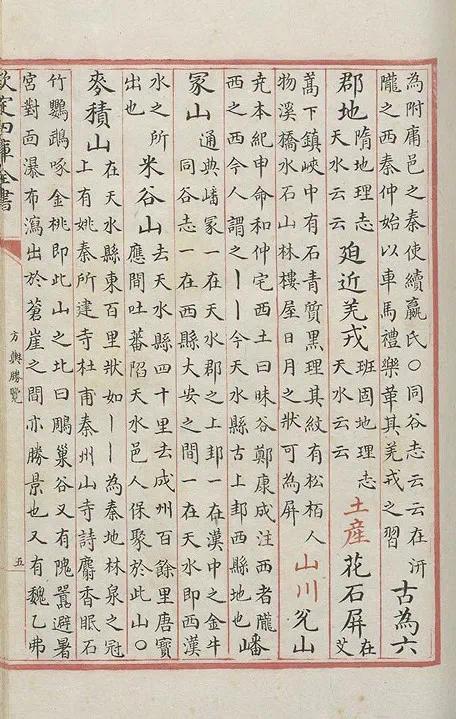 為附庸邑之秦使續嬴氏〇同谷志云云在汧
隴之西秦仲始以車馬禮樂華其羗戎之習
古為六
郡地
隋地理志
天水云云
廹近羗戎
班固地理志
天水云云
土産
花石屏
在
艾
蒿下鎮峽中有石青質黑理其紋有松栢人
物溪橋水石山林樓屋日月之狀可為屏
山川
兊山
尭本紀申命和仲宅西土曰昧谷鄭康成注西者隴
西之西今人謂之丨丨今天水縣古上邽西縣地也
嶓
冢山
通典嶓冢一在天水郡之上邽一在漢中之金牛
同谷志一在西縣大安之間一在天水即西漢
水之所
出也
米谷山
去天水縣四十里去成州百餘里唐寶
應間吐蕃陷天水邑人保聚於此山〇
麥積山
在天水縣東百里狀如丨丨為秦地林泉之冠
上有姚秦所建寺杜甫秦州山寺詩麝香眠石
竹鸚鵡啄金桃即此山之北曰鵰巢谷又有隗囂避暑
宮對面瀑布瀉出於蒼崖之間亦勝景也又有魏乙弗
欽定四庫全書
方輿勝覽
五